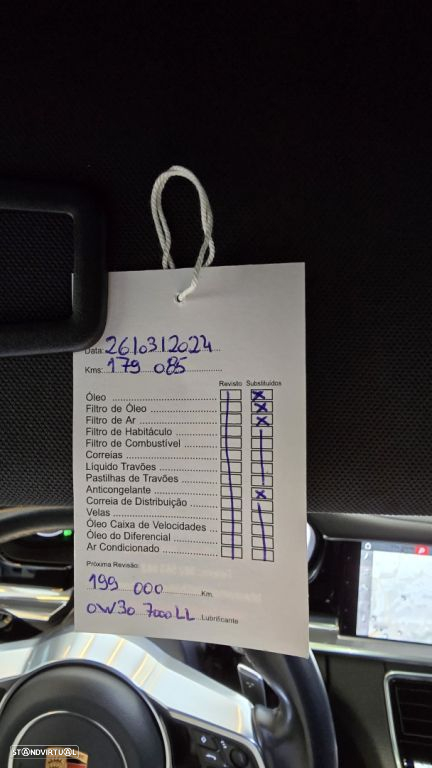 Data: 26/03/2024
Kms: 179 085
Revisto Substituidos
Óleo
Filtro de Óleo
Filtro de Ar
Filtro de Habitáculo
Filtro de Combustível
Correias
Líquido Travões
Pastilhas de Travões
Anticongelante
Correia de Distribuição
Velas
Óleo Caixa de Velocidades
Óleo do Diferencial
Ar Condicionado
Próxima Revisão:
199 000 Km.
0W30 7000LL Lubrificante
STANDVIRTUAL